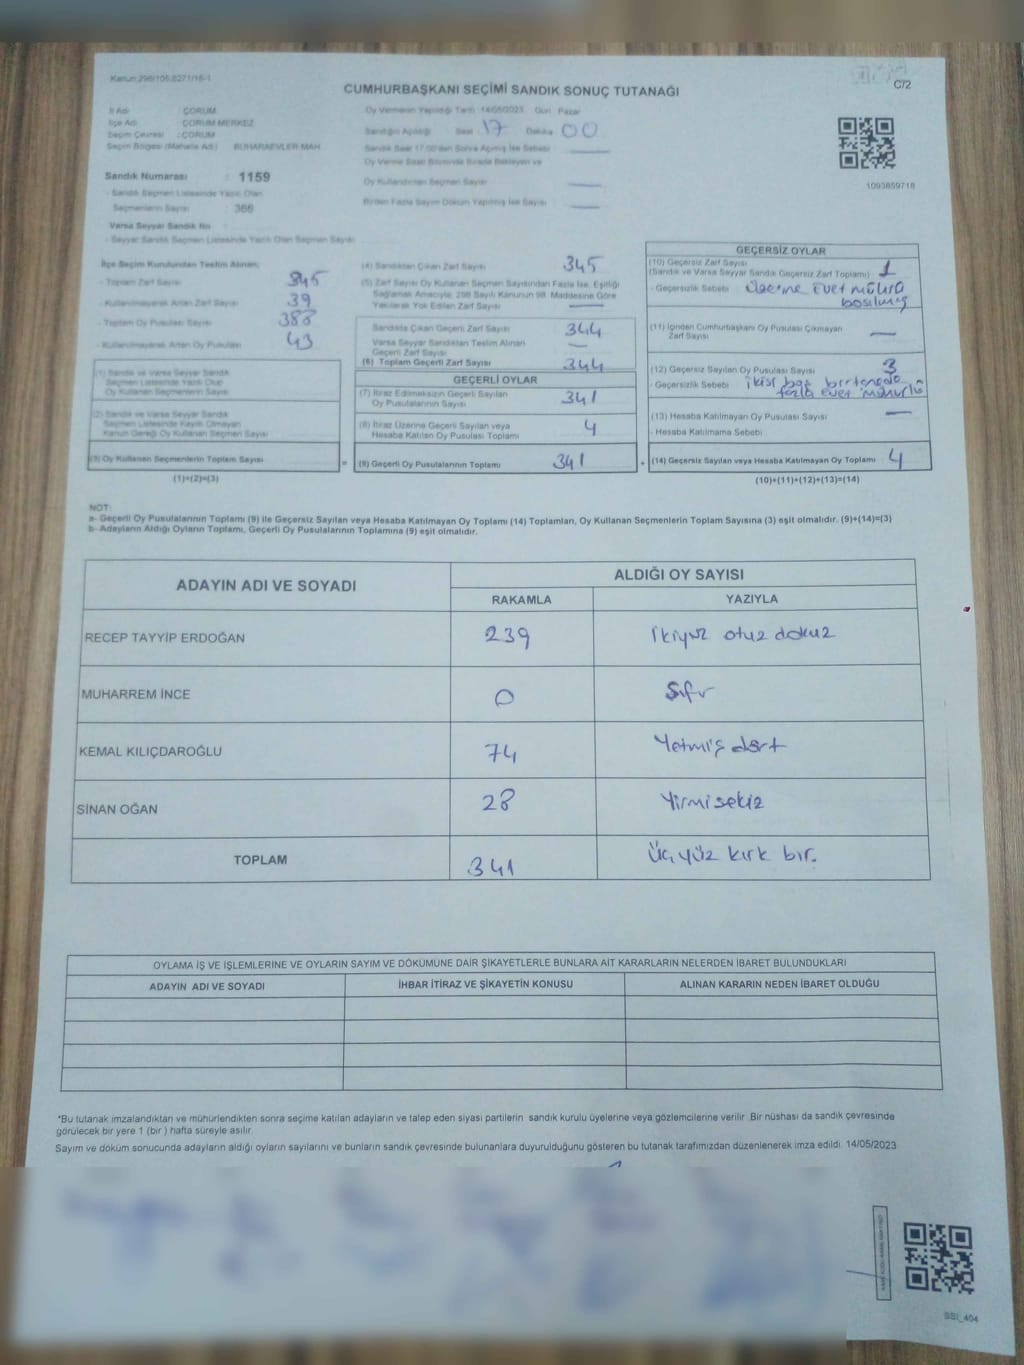 Kanun:298/105,6271/16-1
C72
CUMHURBAŞKANI SEÇİMİ SANDIK SONUÇ TUTANAĞI
İl Adı : ÇORUM
İlçe Adı : ÇORUM MERKEZ
Seçim Çevresi : ÇORUM
Seçim Bölgesi (Mahalle Adı) : BUHARAEVLER MAH.
Sandık Numarası : 1159
- Sandık Seçmen Listesinde Yazılı Olan
Seçmenlerin Sayısı : 366
Varsa Seyyar Sandık No :
- Seyyar Sandık Seçmen Listesinde Yazılı Olan Seçmen Sayısı
Oy Vermenin Yapıldığı Tarih 14/05/2023 Gün Pazar
Sandığın Açıldığı Saat 17 Dakika 00
Sandık Saat 17:00'den Sonra Açılmış İse Sebebi —
Oy Verme Saati Bitiminde Sırada Bekleyen ve
Oy Kullandırılan Seçmen Sayısı —
Birden Fazla Sayım Döküm Yapılmış İse Sayısı —
1093859718
İlçe Seçim Kurulundan Teslim Alınan;
- Toplam Zarf Sayısı 345
- Kullanılmayarak Artan Zarf Sayısı 39
- Toplam Oy Pusulası Sayısı 388
- Kullanılmayarak Artan Oy Pusulası 43
(1) Sandık ve Varsa Seyyar Sandık
Seçmen Listesinde Yazılı Olup
Oy Kullanan Seçmenlerin Sayısı
(2) Sandık ve Varsa Seyyar Sandık
Seçmen Listesinde Kayıtlı Olmayan
Kanun Gereği Oy Kullanan Seçmen Sayısı
(3) Oy Kullanan Seçmenlerin Toplam Sayısı
(1)+(2)=(3)
(4) Sandıktan Çıkan Zarf Sayısı 345
(5) Zarf Sayısı Oy Kullanan Seçmen Sayısından Fazla İse, Eşitliği
Sağlamak Amacıyla; 298 Sayılı Kanunun 98. Maddesine Göre
Yakılarak Yok Edilen Zarf Sayısı —
Sandıkta Çıkan Geçerli Zarf Sayısı 344
Varsa Seyyar Sandıktan Teslim Alınan
Geçerli Zarf Sayısı —
(6) Toplam Geçerli Zarf Sayısı 344
GEÇERLİ OYLAR
(7) İtiraz Edilmeksizin Geçerli Sayılan
Oy Pusulalarının Sayısı 341
(8) İtiraz Üzerine Geçerli Sayılan veya
Hesaba Katılan Oy Pusulası Toplamı 4
= (9) Geçerli Oy Pusulalarının Toplamı 341
GEÇERSİZ OYLAR
(10) Geçersiz Zarf Sayısı
(Sandık ve Varsa Seyyar Sandık Geçersiz Zarf Toplamı) 1
- Geçersizlik Sebebi üzerine Evet mührü
basılmış
(11) İçinden Cumhurbaşkanı Oy Pusulası Çıkmayan
Zarf Sayısı —
(12) Geçersiz Sayılan Oy Pusulası Sayısı 3
- Geçersizlik Sebebi ikisi boş birtanede
fazla evet mührlü
(13) Hesaba Katılmayan Oy Pusulası Sayısı —
- Hesaba Katılmama Sebebi
+ (14) Geçersiz Sayılan veya Hesaba Katılmayan Oy Toplamı 4
(10)+(11)+(12)+(13)=(14)
NOT:
a- Geçerli Oy Pusulalarının Toplamı (9) ile Geçersiz Sayılan veya Hesaba Katılmayan Oy Toplamı (14) Toplamları, Oy Kullanan Seçmenlerin Toplam Sayısına (3) eşit olmalıdır. (9)+(14)=(3)
b- Adayların Aldığı Oyların Toplamı, Geçerli Oy Pusulalarının Toplamına (9) eşit olmalıdır.
ADAYIN ADI VE SOYADI
ALDIĞI OY SAYISI
RAKAMLA YAZIYLA
RECEP TAYYİP ERDOĞAN 239 ikiyüz otuz dokuz
MUHARREM İNCE 0 Sıfır
KEMAL KILIÇDAROĞLU 74 Yetmiş dört
SİNAN OĞAN 28 Yirmi sekiz
TOPLAM 341 Üçyüz kırk bir.
OYLAMA İŞ VE İŞLEMLERİNE VE OYLARIN SAYIM VE DÖKÜMÜNE DAİR ŞİKAYETLERLE BUNLARA AİT KARARLARIN NELERDEN İBARET BULUNDUKLARI
ADAYIN ADI VE SOYADI İHBAR İTİRAZ VE ŞİKAYETİN KONUSU ALINAN KARARIN NEDEN İBARET OLDUĞU
*Bu tutanak imzalandıktan ve mühürlendikten sonra seçime katılan adayların ve talep eden siyasi partilerin sandık kurulu üyelerine veya gözlemcilerine verilir. Bir nüshası da sandık çevresinde
görülecek bir yere 1 (bir ) hafta süreyle asılır.
Sayım ve döküm sonucunda adayların aldığı oyların sayılarını ve bunların sandık çevresinde bulunanlara duyurulduğunu gösteren bu tutanak tarafımızdan düzenlenerek imza edildi. 14/05/2023
SBI_404